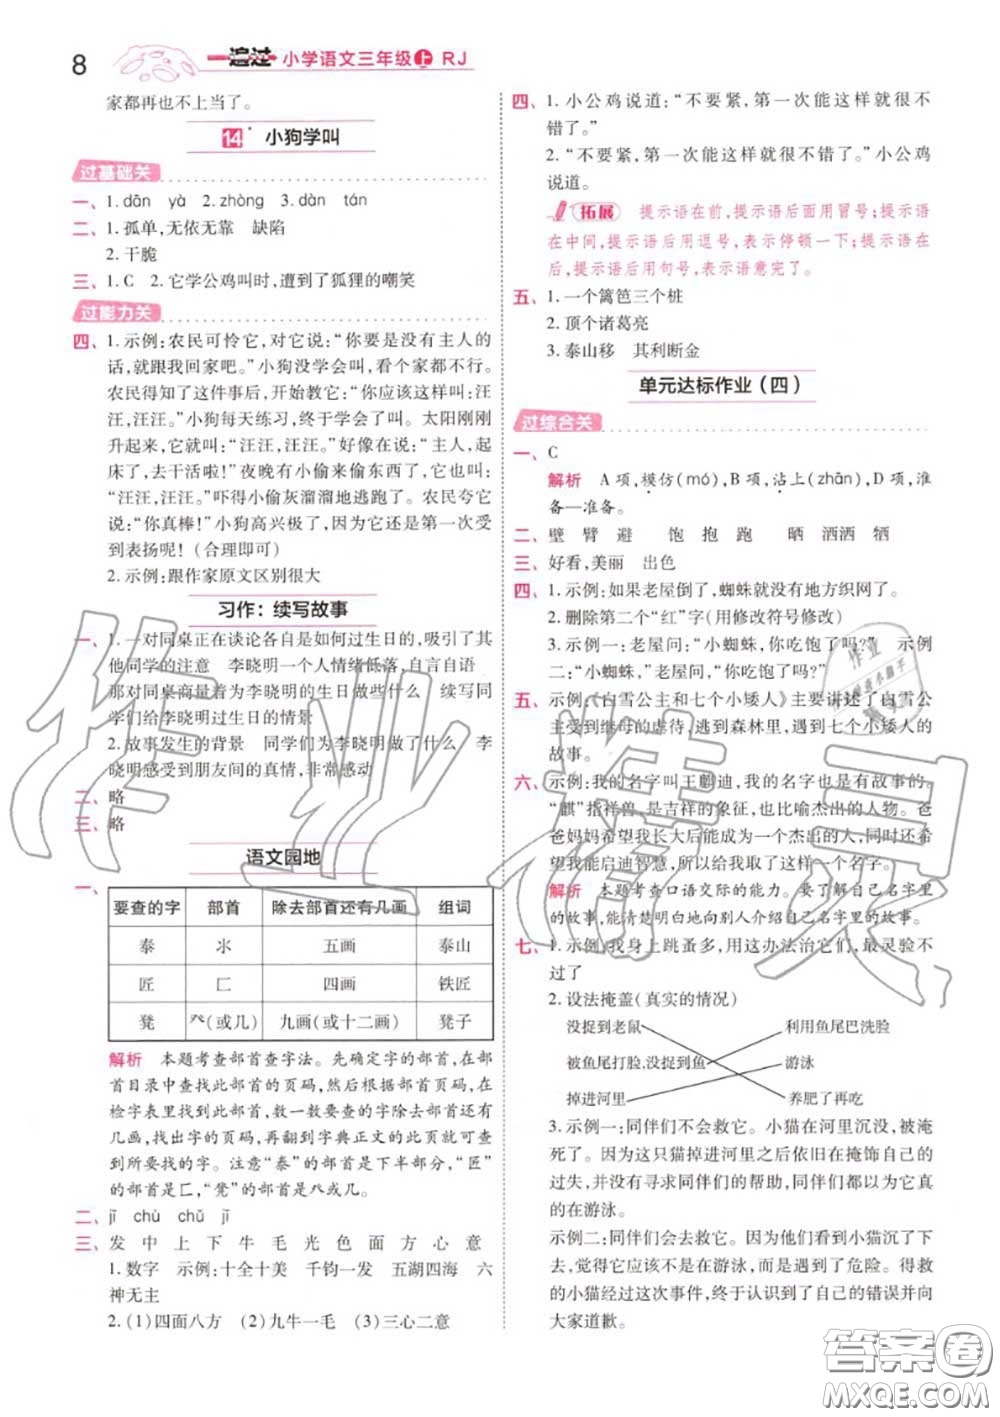 8
一遍过 小学语文三年级上 RJ
家都再也不上当了。
14* 小狗学叫
过基础关
一、1. dān yà 2. zhòng 3. dàn tán
二、1. 孤单,无依无靠 缺陷
2. 干脆
三、1. C 2. 它学公鸡叫时,遭到了狐狸的嘲笑
过能力关
四、1. 示例:农民可怜它,对它说:“你要是没有主人的
话,就跟我回家吧。”小狗没学会叫,看个家都不行。
农民得知了这件事后,开始教它:“你应该这样叫:汪
汪,汪汪。”小狗每天练习,终于学会了叫。太阳刚刚
升起来,它就叫:“汪汪,汪汪。”好像在说:“主人,起
床了,去干活啦!”夜晚有小偷来偷东西了,它叫道:
“汪汪,汪汪。”吓得小偷灰溜溜地逃跑了。农民夸它
说:“你真棒!”小狗高兴极了,因为它还是第一次受
到表扬呢!(合理即可)
2. 示例:跟作家原文区别很大
习作:续写故事
一、1. 一对同桌正在谈论各自是如何过生日的,吸引了其
他同学的注意 李晓明一个人情绪低落,自言自语
那对同桌商量着为李晓明的生日做些什么 续写同
学们给李晓明过生日的情景
2. 故事发生的背景 同学们为李晓明做了什么 李
晓明感受到朋友间的真情,非常感动
二、略
三、略
语文园地
一、
要查的字 部首 除去部首还有几画 组词
泰 氺 五画 泰山
匠 匚 四画 铁匠
凳 癶(或几) 九画(或十二画) 凳子
解析 本题考查部首查字法。先确定字的部首,在部
首目录中查找此部首的页码,然后根据页码,在
检字表里找到此部分,数一数要查的字除去部首还有
几画,找出字的页码,再翻到字典正文的此页就可查
到要找的字。注意“泰”的部首是下半部分,“匠”
的部首是匚,“凳”的部首是癶或几。
二、jī chù chǔ jǐ
三、发 中 上 下 牛 毛 光 色 面 方 心 意
1. 数字 示例:十全十美 千钧一发 五湖四海 六
神无主
2. (1)四面八方 (2)九牛一毛 (3)三心二意
四、1. 小公鸡说道:“不要紧,第一次能这样就很不
错了。”
2. “不要紧,第一次能这样就很不错了。”小公鸡
说道。
拓展 提示语在前,提示语后面用冒号;提示语
在中间,提示语后用逗号,表示停顿一下;提示语在
后,提示语后用句号,表示语意完了。
五、1. 一个篱笆三个桩
2. 顶个诸葛亮
3. 泰山移 其利断金
单元达标作业(四)
过综合关
一、C
解析 A 项,模仿(mó),B 项,沾上(zhān),D 项,淮
备—准备。
二、壁 臂 避 饱 抱 跑 晒 洒洒 牺
三、好看,美丽 出色
四、1. 示例:如果老屋倒了,蜘蛛就没有地方织网了。
2. 删除第二个“红”字(用修改符号修改)
3. 示例一:老屋问:“小蜘蛛,你吃饱了吗?” 示例
二:“小蜘蛛,”老屋问,“你吃饱了吗?”
五、示例:《白雪公主和七个小矮人》主要讲述了白雪公
主受到继母的虐待,逃到森林里,遇到七个小矮人的
故事。
六、示例:我的名字叫王麒迪,我的名字也是有故事的。
“麒”指祥兽,是吉祥的象征,也比喻杰出的人物。爸
爸妈妈希望我长大后能成为一个杰出的人,同时还希
望我能启迪智慧,所以给我取了这样一个名字。
解析 本题考查口语交际的能力。要了解自己名字里
的故事,能清楚明白地向别人介绍自己名字的故事。
七、1. 示例:我身上跳蚤多,用这办法治它们,最灵验不
过了
2. 设法掩盖(真实的情况)
没捉到老鼠 利用鱼尾巴洗脸
被鱼尾打脸,没捉到鱼 游泳
掉进河里 养肥了再吃
3. 示例一:同伴们不会救它。小猫在河里沉没,被淹
死了。因为这只猫掉进河里之后依旧在掩饰自己的
过失,并没有寻求同伴们的帮助,同伴们都以为它真
的在游泳。
示例二:同伴们会去救它。同伴们看到小猫沉了下
去,觉得它应该不是在游泳,而是遇到了危险。得救
的小猫经过这次事件,终于认识到了自己的错误并向
大家道歉。
作业精灵
答案圈
MXQE.COM